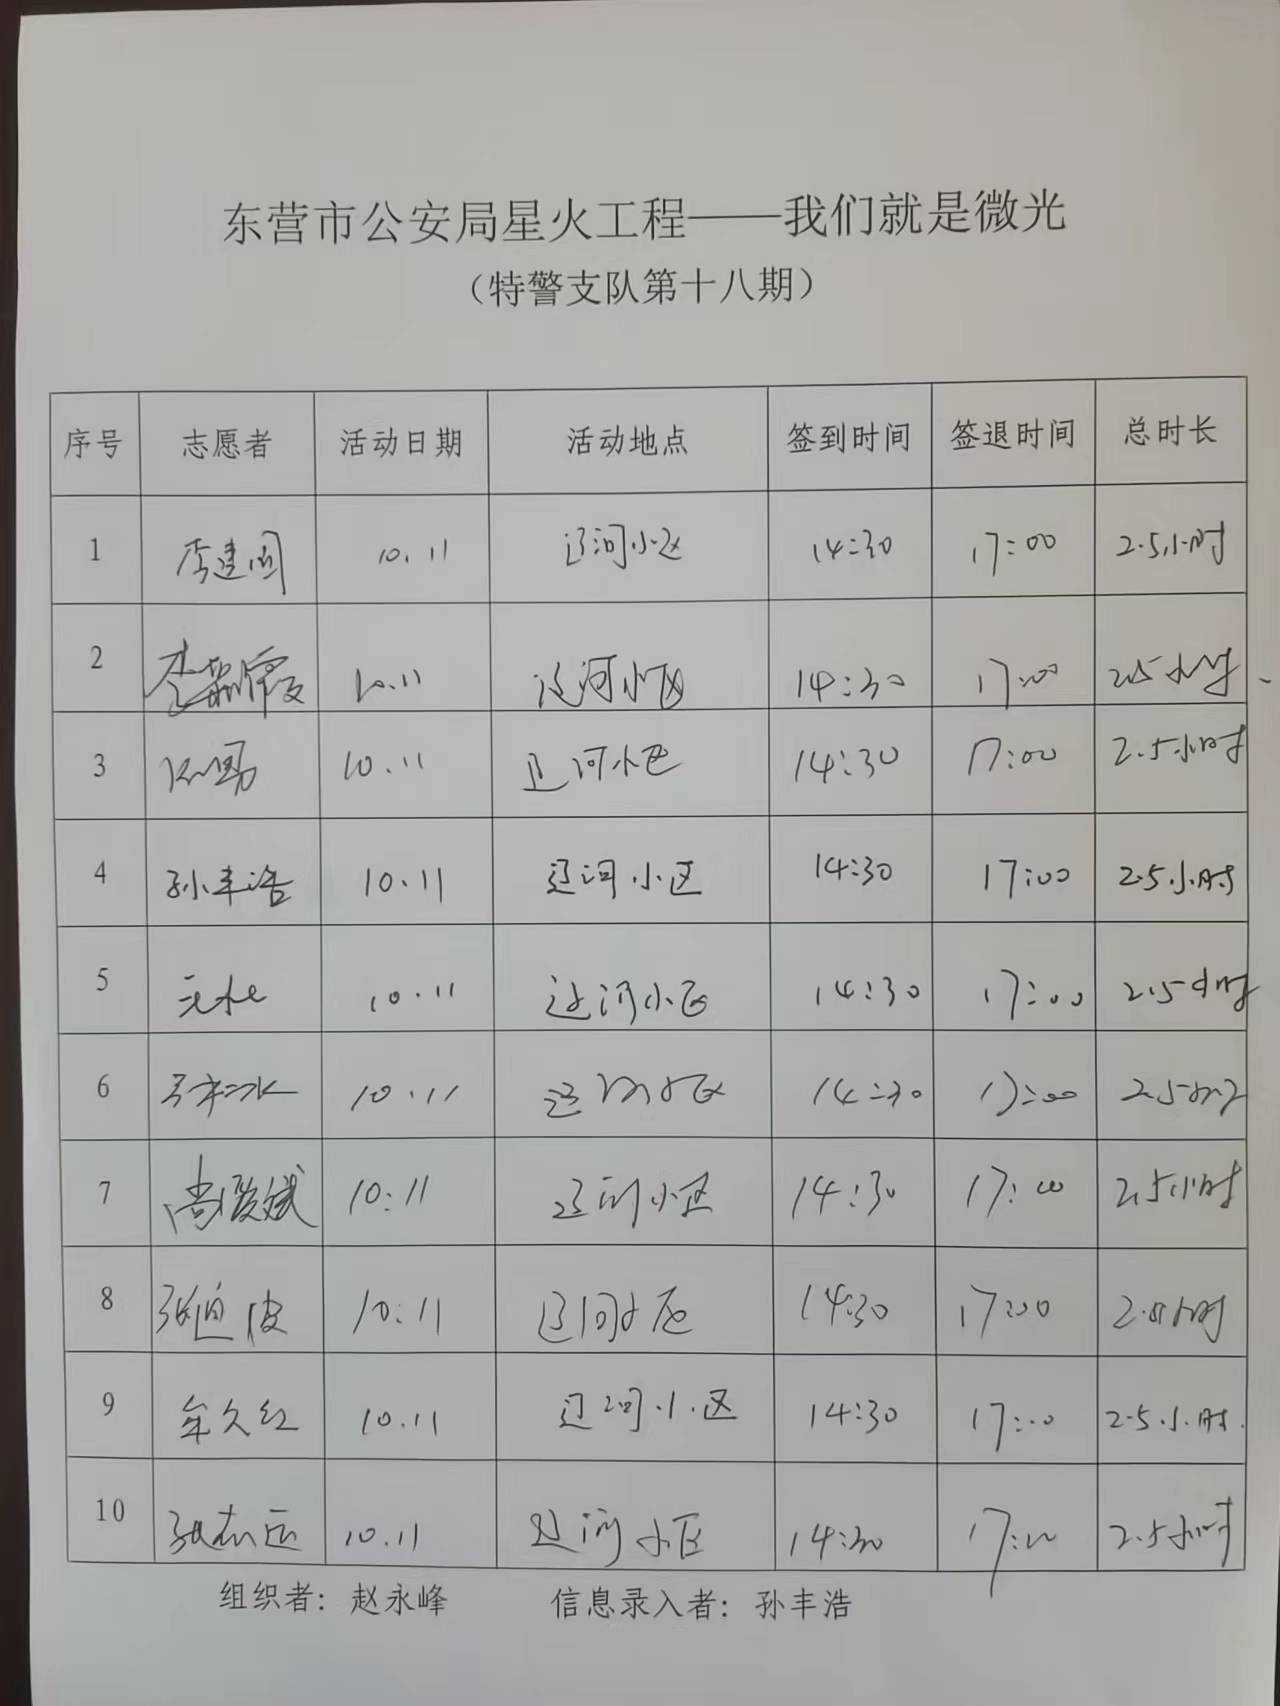 东营市公安局星火工程——我们就是微光
（特警支队第十八期）
序号 志愿者 活动日期 活动地点 签到时间 签退时间 总时长
1 李建国 10.11 辽河小区 14:30 17:00 2.5小时
2 10.11 辽河小区 14:30 17:00 2.5小时
3 10.11 辽河小区 14:30 17:00 2.5小时
4 孙丰浩 10.11 辽河小区 14:30 17:00 2.5小时
5 10.11 辽河小区 14:30 17:00 2.5小时
6 10.11 辽河小区 14:30 17:00 2.5小时
7 10:11 辽河小区 14:30 17:00 2.5小时
8 10:11 辽河小区 14:30 17:00
9 牟久红 10.11 辽河小区 14:30 17:00 2.5小时.
10 张志远 10.11 辽河小区 14:30 17:00 2.5小时
组织者：赵永峰 信息录入者：孙丰浩